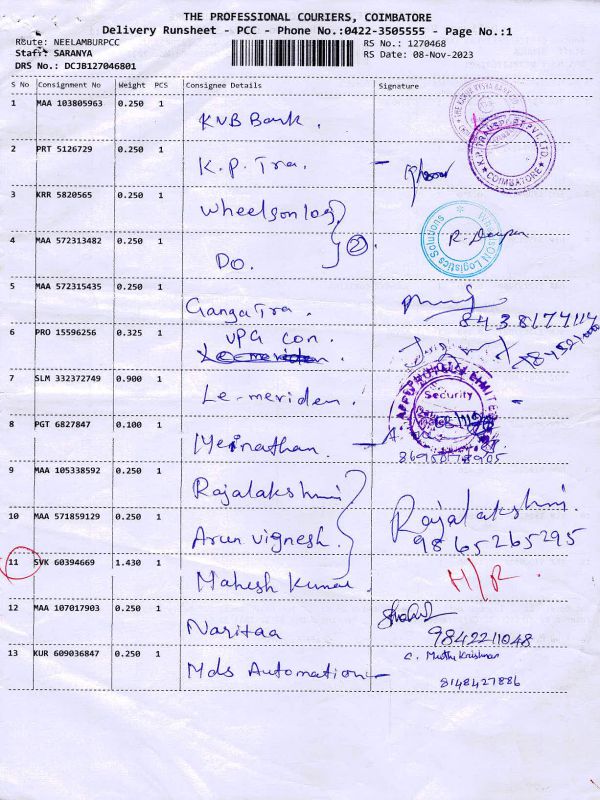 THE PROFESSIONAL COURIERS, COIMBATORE
Delivery Runsheet - PCC - Phone No.:0422-3505555 - Page No.:1
Route: NEELAMBURPCC
RS No.: 1270468
Staff: SARANYA
RS Date: 08-Nov-2023
DRS No.: DCJB127046801
S No Consignment No Weight PCS Consignee Details Signature
1 MAA 103805963 0.250 1 KVB Bank.
2 PRT 5126729 0.250 1 K.P. Tra.
K.P. TRANSPORT PVT. LTD. COIMBATORE
3 KRR 5820565 0.250 1 Wheelsonlog
WheelsON Logistics Solutions
4 MAA 572313482 0.250 1 Do. 2
5 MAA 572315435 0.250 1 Ganga Tra.
8438174114
6 PRO 15596256 0.325 1 VPG Con.
Le-meriden.
7 SLM 332372749 0.900 1 Le-meriden.
Security
8 PGT 6827847 0.100 1 Meinathan.
9 MAA 105338592 0.250 1 Rajalakshmi
10 MAA 571859129 0.250 1 Arun vignesh. Rajalakshmi.
9865265295
11 SVK 60394669 1.430 1 Mahesh Kumar. H/R.
12 MAA 107017903 0.250 1 Naritaa
9842211048
13 KUR 609036847 0.250 1 Mds Automation C. Muthu Krishnan
8148427886